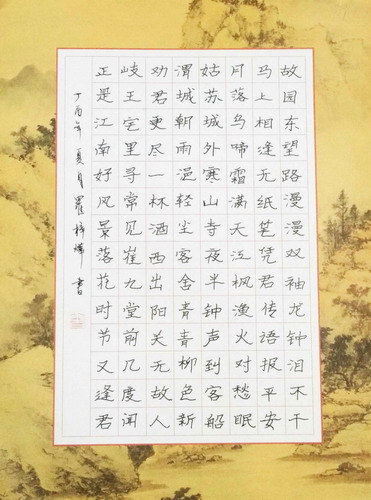 故园东望路漫漫双袖龙钟泪不干
马上相逢无纸笔凭君传语报平安
月落乌啼霜满天江枫渔火对愁眠
姑苏城外寒山寺夜半钟声到客船
渭城朝雨浥轻尘客舍青青柳色新
劝君更尽一杯酒西出阳关无故人
岐王宅里寻常见崔九堂前几度闻
正是江南好风景落花时节又逢君
丁酉年夏月羅梓燁書